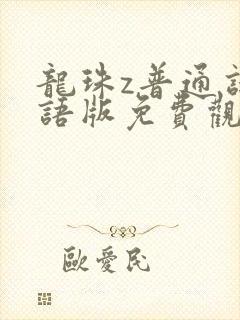 龍珠z普通話
語版免費觀
歐愛民